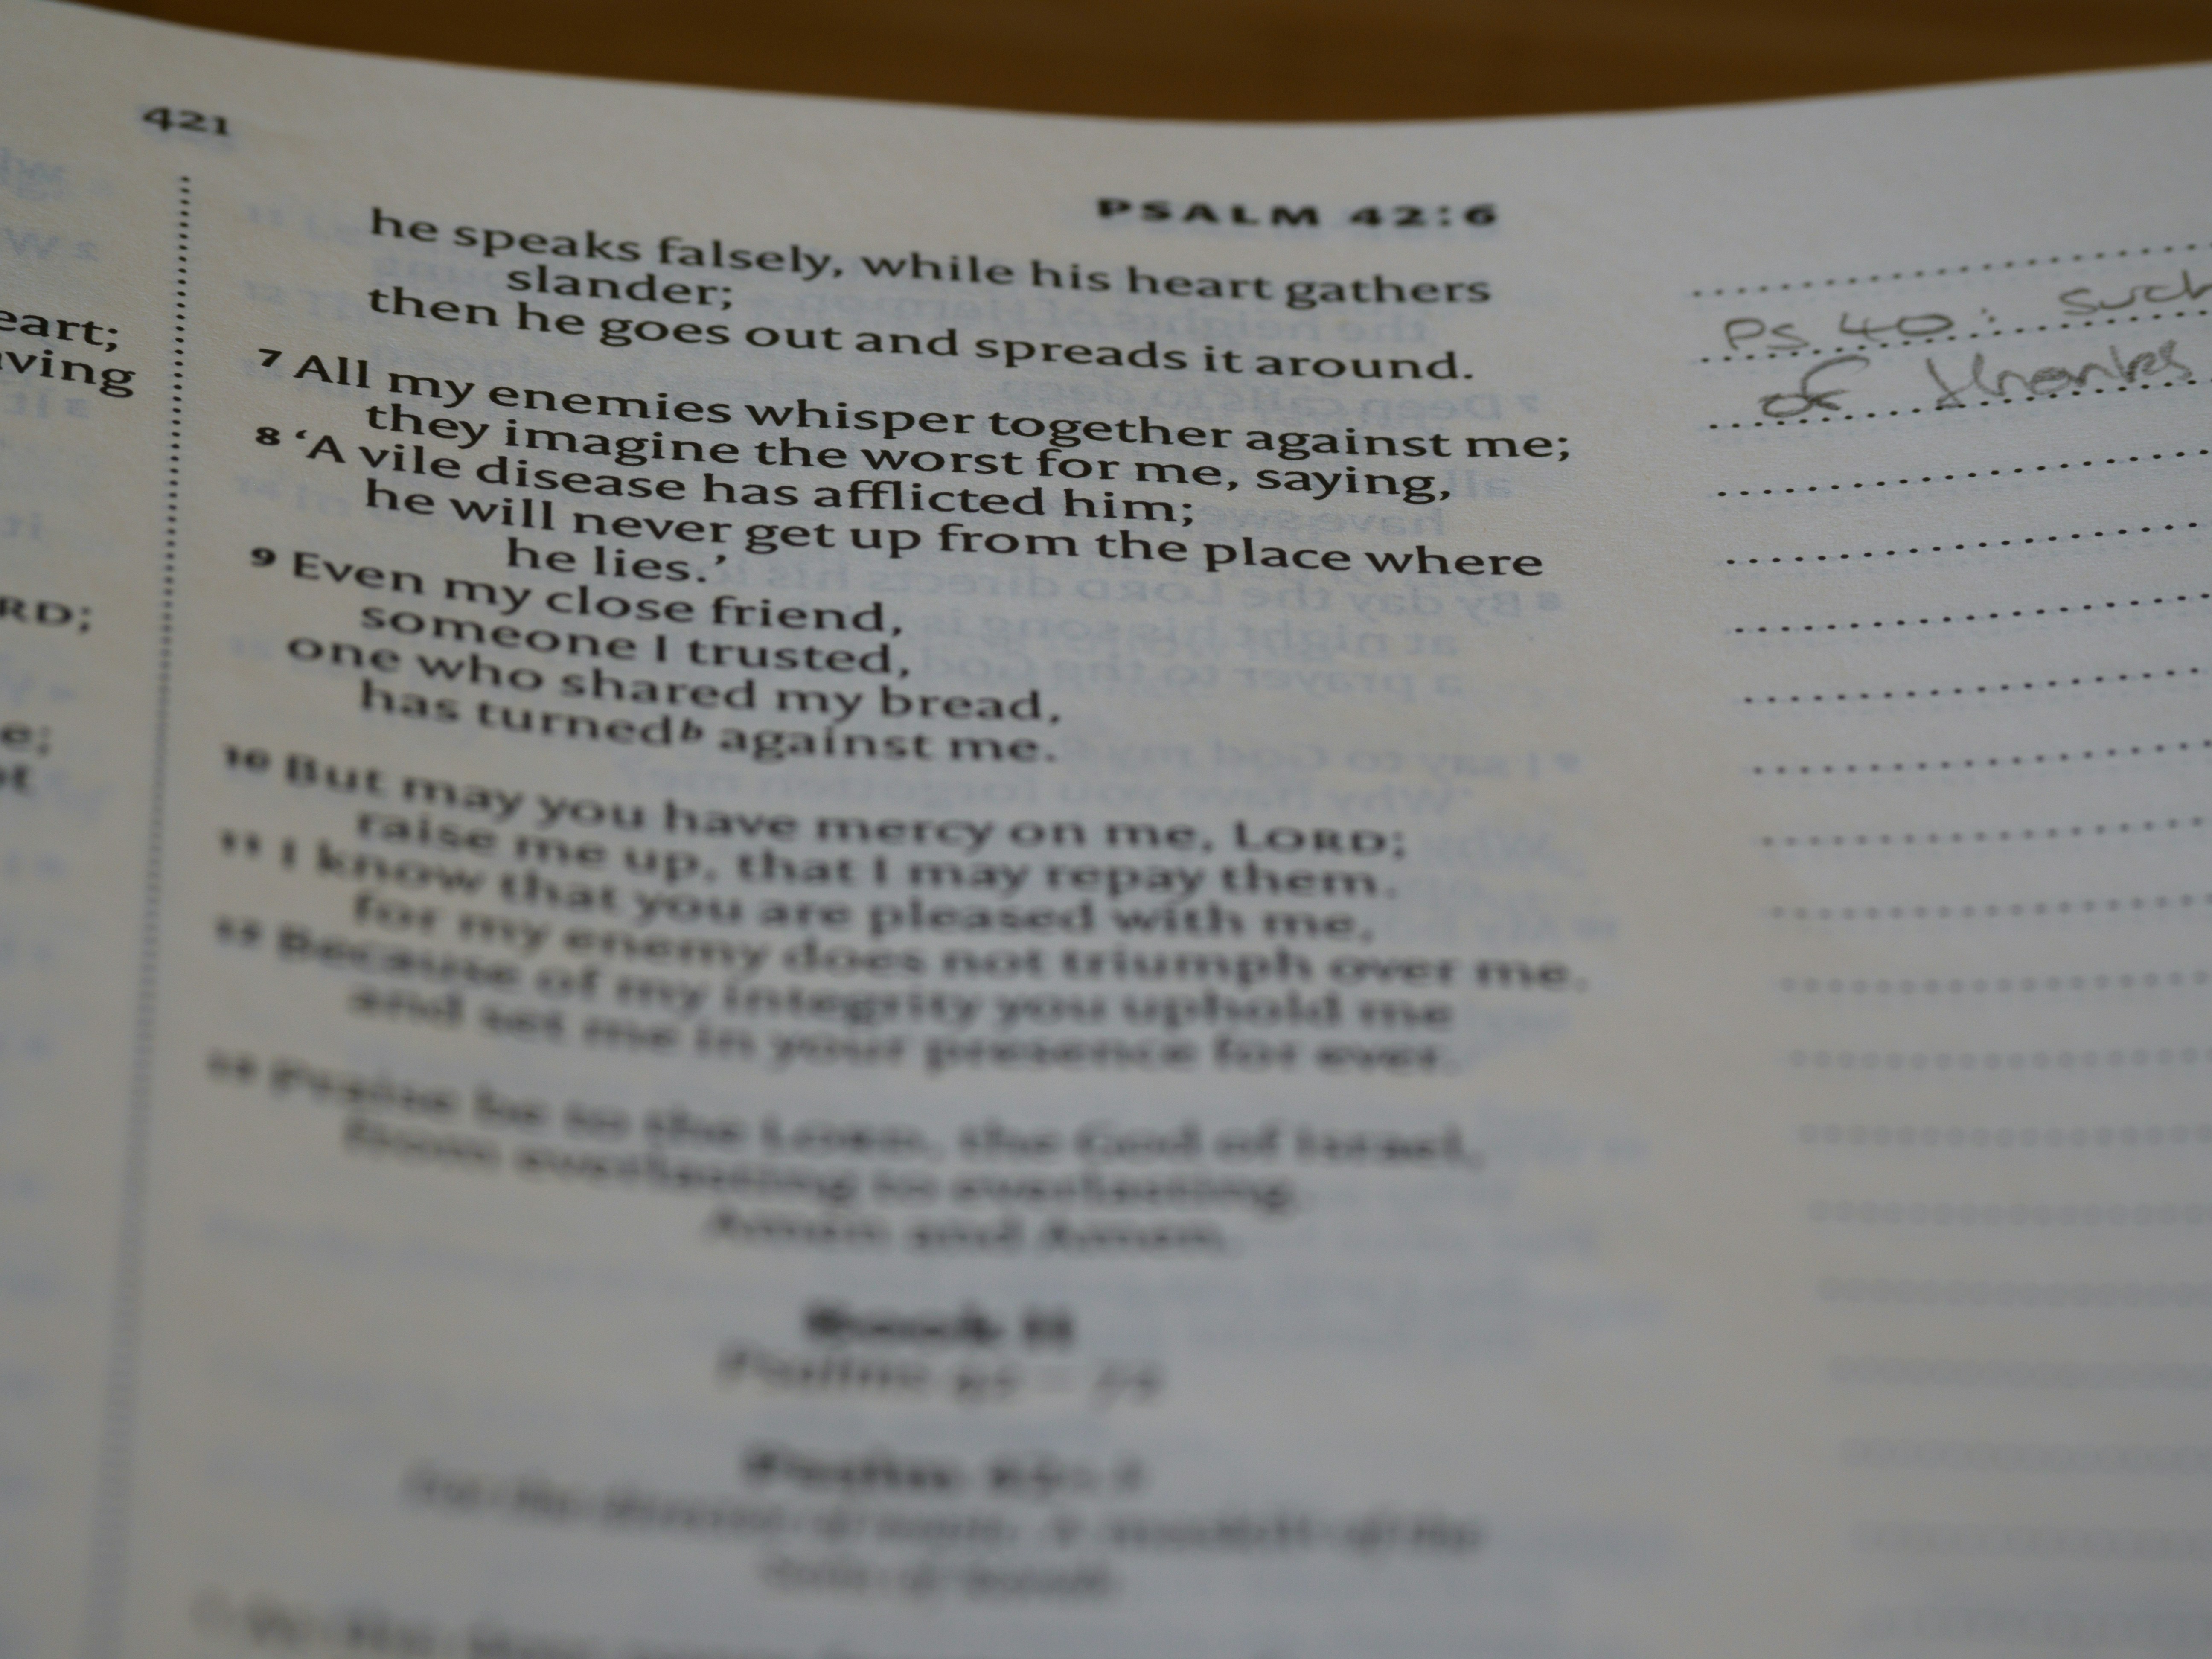 421
PSALM 42:6
eart;
ving
RD;
e;
ot
he speaks falsely, while his heart gathers
slander;
then he goes out and spreads it around.
7 All my enemies whisper together against me;
they imagine the worst for me, saying,
8 ‘A vile disease has afflicted him;
he will never get up from the place where
he lies.’
9 Even my close friend,
someone I trusted,
one who shared my bread,
has turnedb against me.
10 But may you have mercy on me, LORD;
raise me up, that I may repay them.
11 I know that you are pleased with me,
for my enemy does not triumph over me.
12 Because of my integrity you uphold me
and set me in your presence for ever.
13 Praise be to the LORD, the God of Israel,
from everlasting to everlasting.
Amen and Amen.
Book II
Psalms
Psalm
PS 40: such
of thanks